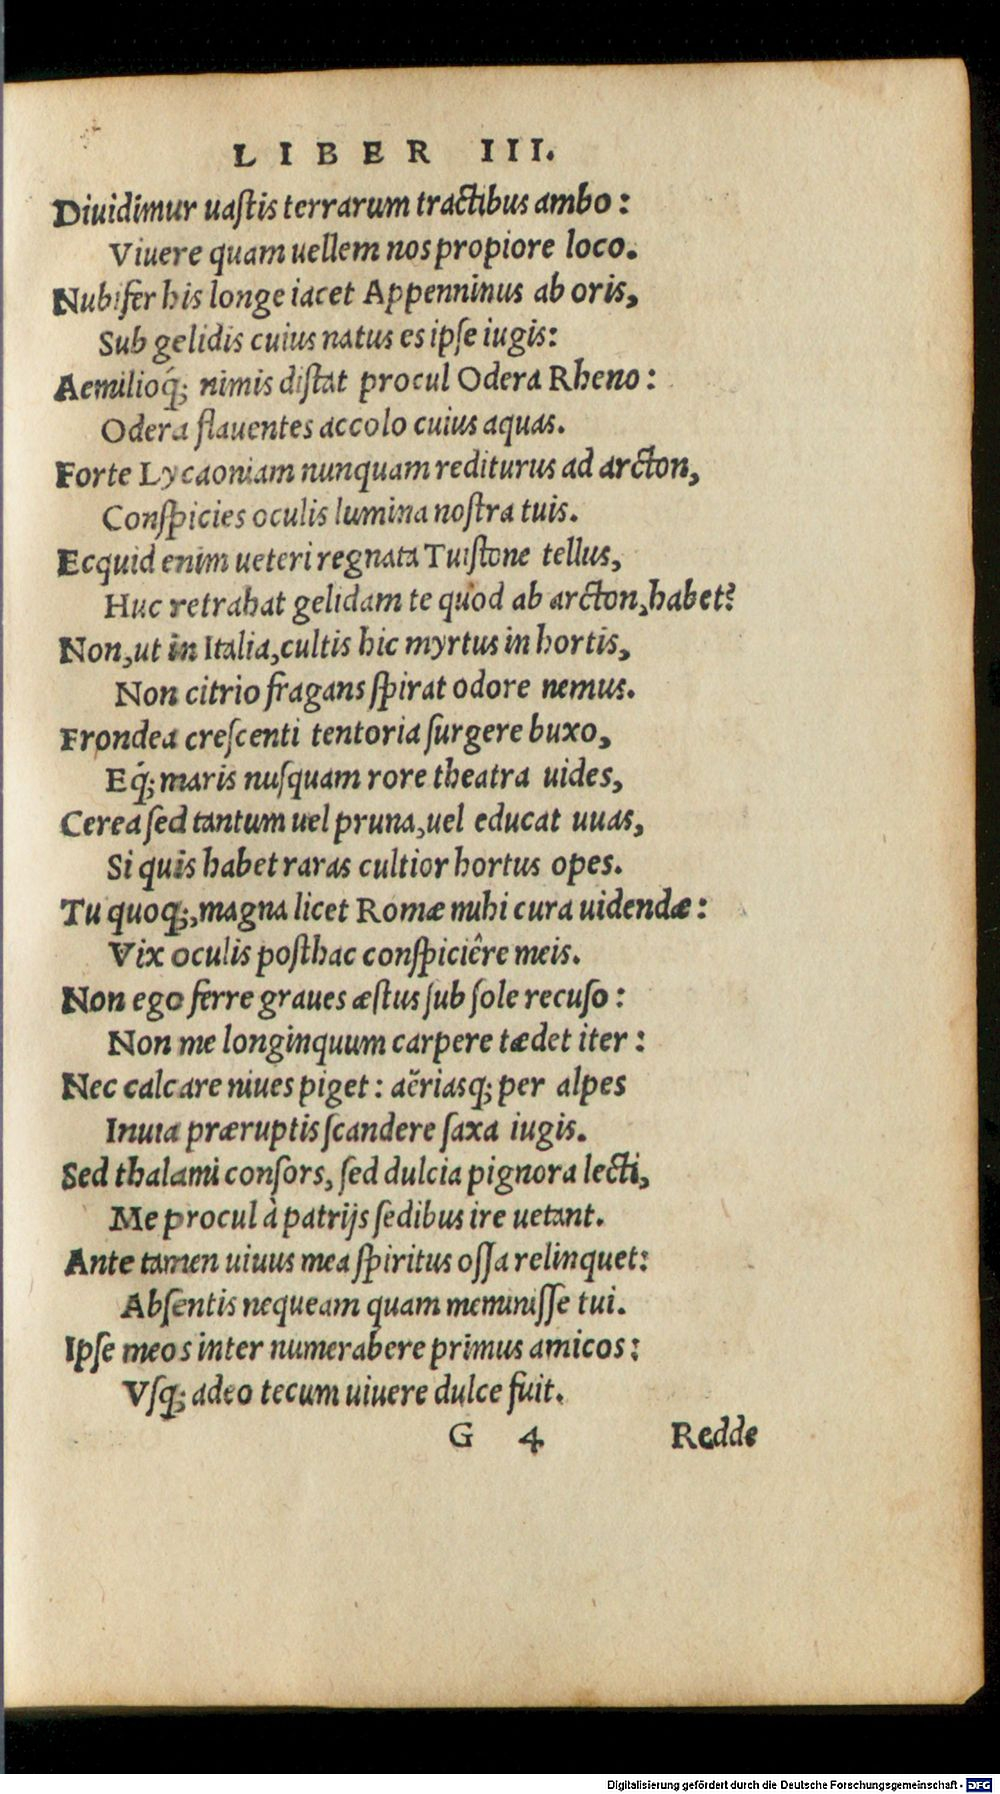 LIBER III.
Diuidimur uaſtis terrarum tractibus ambo:
Viuere quam uellem nos propiore loco.
Nubifer his longe iacet Appenninus ab oris,
Sub gelidis cuius natus es ipſe iugis:
Aemilioq́; nimis diſtat procul Odera Rheno:
Odera flauentes accolo cuius aquas.
Forte Lycaoniam nunquam rediturus ad arcton,
Conſpicies oculis lumina noſtra tuis.
Ecquid enim ueteri regnata Tuiſtone tellus,
Huc retrahat gelidam te quod ab arcton, habet?
Non, ut in Italia, cultis hic myrtus in hortis,
Non citrio fragans ſpirat odore nemus.
Frondea creſcenti tentoria ſurgere buxo,
Eq́; maris nuſquam rore theatra uides,
Cerea ſed tantum uel pruna, uel educat uuas,
Si quis habet raras cultior hortus opes.
Tu quoq;, magna licet Romæ mihi cura uidendæ:
Vix oculis poſthac conſpiciêre meis.
Non ego ferre graues æſtus ſub ſole recuſo:
Non me longinquum carpere tædet iter:
Nec calcare niues piget: aëriasq; per alpes
Inuia præruptis ſcandere ſaxa iugis.
Sed thalami conſors, ſed dulcia pignora lecti,
Me procul à patrijs ſedibus ire uetant.
Ante tamen uiuus mea ſpiritus oſſa relinquet:
Abſentis nequeam quam meminiſſe tui.
Ipſe meos inter numerabere primus amicos:
Vſq; adeo tecum uiuere dulce fuit.
G 4 Redde
Digitalisierung gefördert durch die Deutsche Forschungsgemeinschaft - DFG